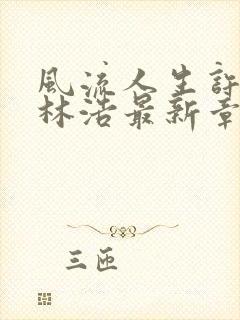 風流人生許
林浩最新章
三匝